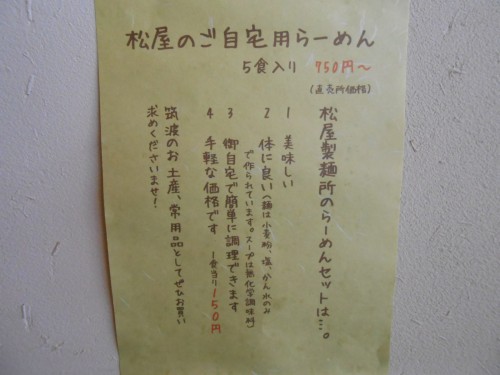 松屋のご自宅用らーめん
5食入り 750円〜
(直売所価格)
松屋製麺所のらーめんセットは…。
1 美味しい
2 体に良い(麺は小麦粉、塩、かん水のみ
で作られています。スープは無化学調味料)
3 御自宅で簡単に調理できます
4 手軽な価格です 1食当り150円
筑波のお土産、常用品としてぜひお買い
求めくださいませ!